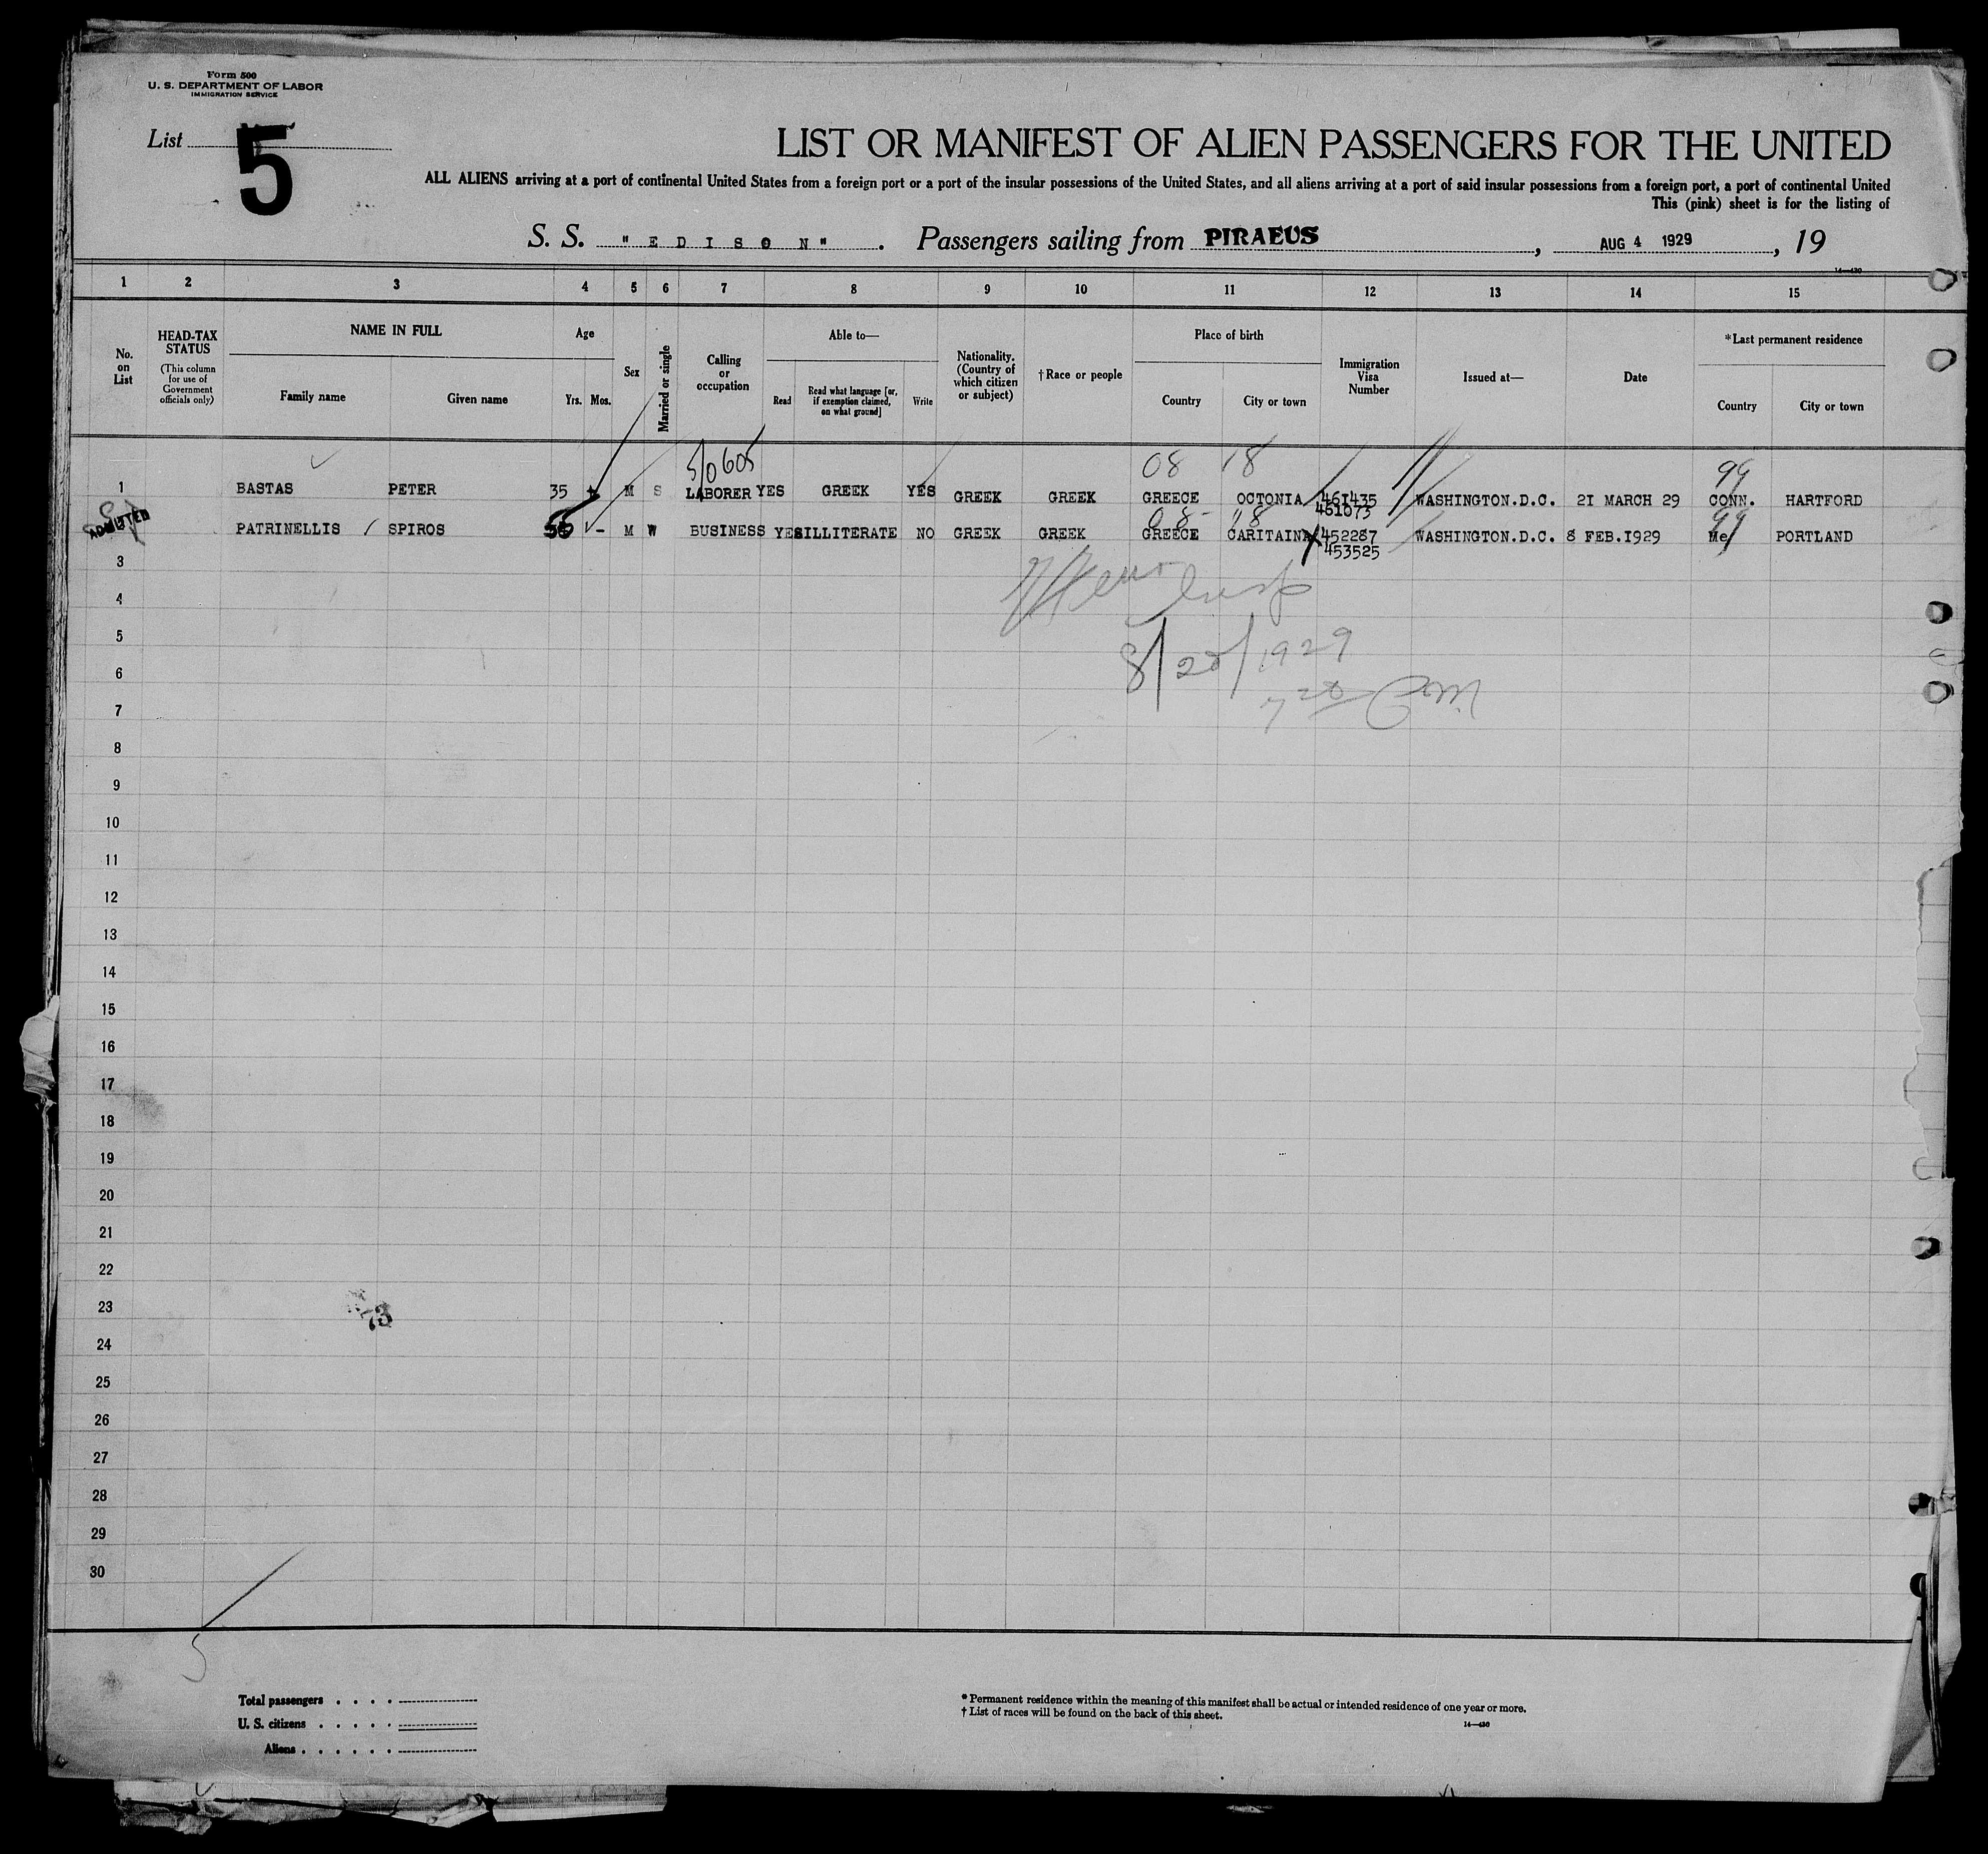 Form 500
U. S. DEPARTMENT OF LABOR
IMMIGRATION SERVICE
List 5
LIST OR MANIFEST OF ALIEN PASSENGERS FOR THE UNITED
ALL ALIENS arriving at a port of continental United States from a foreign port or a port of the insular possessions of the United States, and all aliens arriving at a port of said insular possessions from a foreign port, a port of continental United
This (pink) sheet is for the listing of
S. S. "EDISON". Passengers sailing from PIRAEUS, AUG 4 1929, 19
14—430
1 2 3 4 5 6 7 8 9 10 11 12 13 14 15
No. on List
HEAD-TAX STATUS
(This column for use of Government officials only)
NAME IN FULL
Family name Given name
Age
Yrs. Mos.
Sex
Married or single
Calling or occupation
Able to—
Read Read what language [or, if exemption claimed, on what ground] Write
Nationality. (Country of which citizen or subject)
†Race or people
Place of birth
Country City or town
Immigration Visa Number
Issued at—
Date
*Last permanent residence
Country City or town
5/0605 08 18 99
1 BASTAS PETER 35 M S LABORER YES GREEK YES GREEK GREEK GREECE OCTONIA 461435 WASHINGTON.D.C. 21 MARCH 29 CONN. HARTFORD
461073
08- 18 99
ADMITTED PATRINELLIS SPIROS - M W BUSINESS YES ILLITERATE NO GREEK GREEK GREECE CARITAINA 452287 WASHINGTON.D.C. 8 FEB.1929 Me PORTLAND
453525
3
4
Insp
5
8/20/1929
6
7 20 P.M.
7
8
9
10
11
12
13
14
15
16
17
18
19
20
21
22
23
73
24
25
26
27
28
29
30
5
Total passengers
U. S. citizens
Aliens
*Permanent residence within the meaning of this manifest shall be actual or intended residence of one year or more.
†List of races will be found on the back of this sheet.
14—430